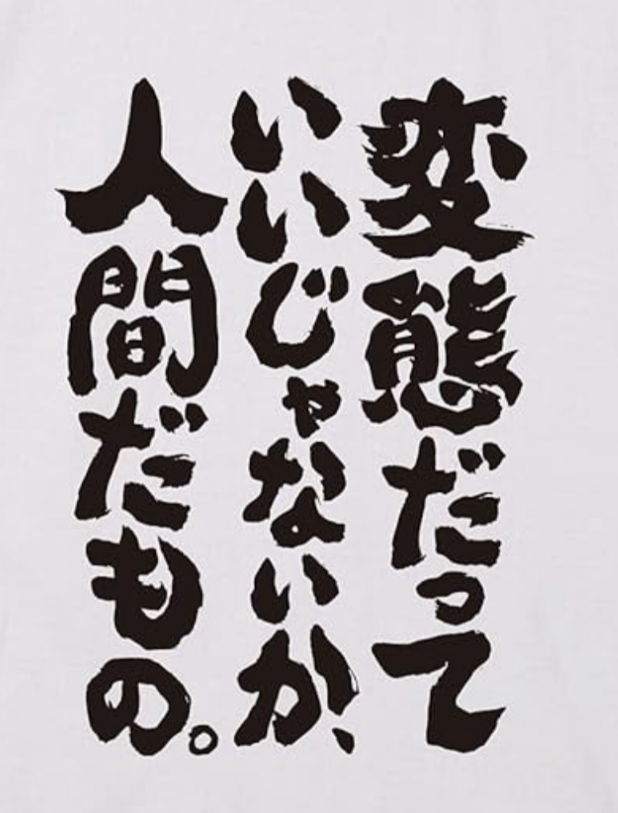 変態だって
いいじゃないか、
人間だもの。